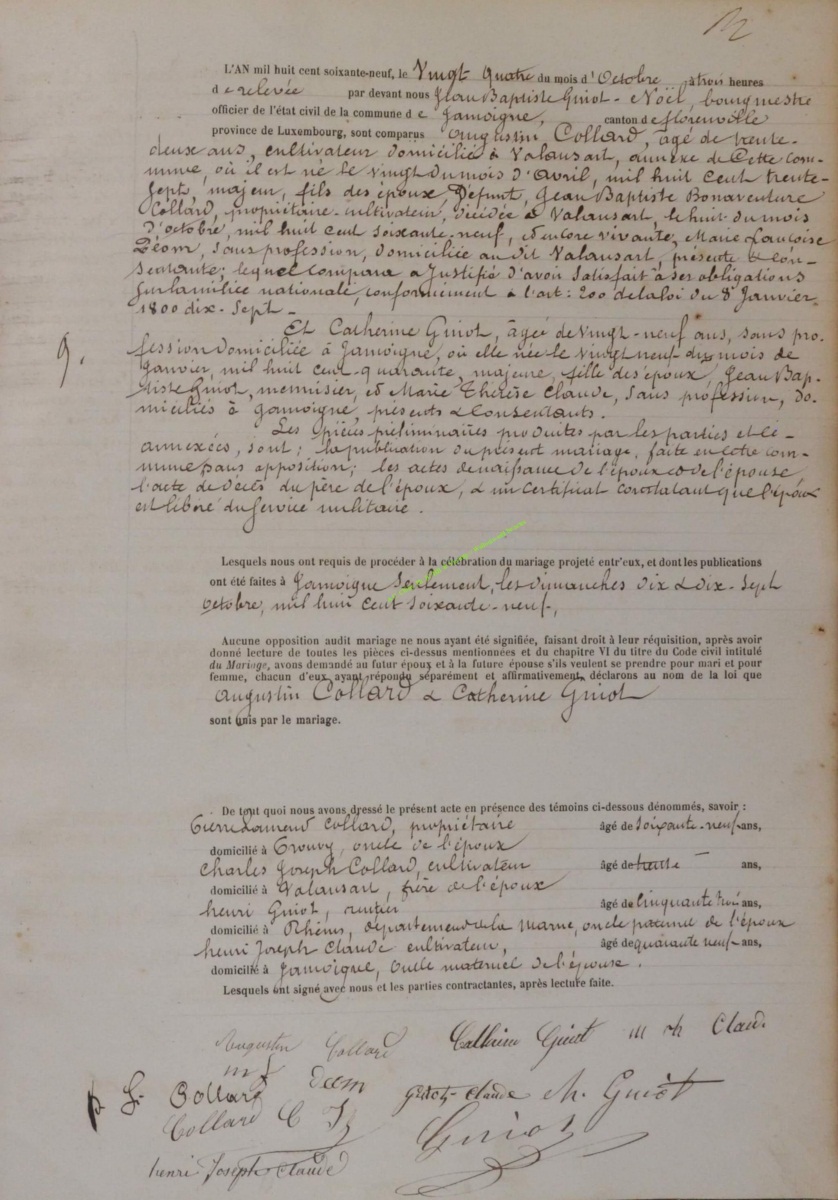 L'AN mil huit cent soixante-neuf, le Vingt quatre du mois d'Octobre à trois heures
de relevée par devant nous Jean Baptiste Guiot-Noël, bourgmestre
officier de l'état civil de la commune de Jamoigne, canton de florenville
province de Luxembourg, sont comparus Augustin Collard, âgé de trente-
deux ans, cultivateur domicilié à Valansart, annexe de Cette com-
mune, où il est né le vingt du mois d'avril, mil huit cent trente-
sept, majeur, fils des époux, Défunt, Jean Baptiste Bonaventure
Collard, propriétaire-cultivateur, décédé à Valansart, le huit du mois
d'octobre, mil huit cent soixante-neuf, et encore vivante, Marie françoise
Déom, sans profession, domiciliée au dit Valansart, présente & con-
sentante; lequel comparu a justifié d'avoir satisfait à ses obligations
sur la milice nationale, conformément à l'art: 200 de la loi du 8 Janvier
1800 dix-sept_
9.
Et Catherine Guiot, âgée de vingt-neuf ans, sans pro-
fession domiciliée à Jamoigne, où elle née le vingt neuf du mois de
Janvier, mil huit cent quarante, majeure, fille des époux, Jean Bap-
tiste Guiot, menuisier, et Marie Thérèse Claude, sans profession, do-
miciliés à Jamoigne, présents & Consentants.
Les pièces préliminaires produites par les parties et ci-
annexées, sont; la publication du présent mariage, faite en cette com-
mune sans opposition; les actes de naissance de l'époux et de l'épouse,
l'acte de décès du père de l'époux, & un certificat constatant que l'époux
est libéré du service militaire.
Lesquels nous ont requis de procéder à la célébration du mariage projeté entr'eux, et dont les publications
ont été faites à Jamoigne seulement, les dimanches dix & dix-sept
octobre, mil huit cent soixante-neuf,
Aucune opposition audit mariage ne nous ayant été signifiée, faisant droit à leur réquisition, après avoir
donné lecture de toutes les pièces ci-dessus mentionnées et du chapitre VI du titre du Code civil intitulé
du Mariage, avons demandé au futur époux et à la future épouse s'ils veulent se prendre pour mari et pour
femme, chacun d'eux ayant répondu séparément et affirmativement, déclarons au nom de la loi que
Augustin Collard & Catherine Guiot
sont unis par le mariage.
De tout quoi nous avons dressé le présent acte en présence des témoins ci-dessous dénommés, savoir :
Collard, propriétaire âgé de soixante-neuf ans,
domicilié à oncle de l'époux
Charles Joseph Collard, cultivateur âgé de trente ans,
domicilié à Valansart, frère de l'époux
henri Guiot, rentier âgé de cinquante ans,
domicilié à Rheims, département de la Marne, oncle paternel de l'époux
henri Joseph Claude cultivateur, âgé de quarante neuf ans,
domicilié à Jamoigne, oncle maternel de l'épouse.
Lesquels ont signé avec nous et les parties contractantes, après lecture faite.
Augustin Collard Catherine Guiot m th Claude
m f Déom Guiot-Claude h. Guiot
Collard
Collard C J Guiot
henri Joseph Claude